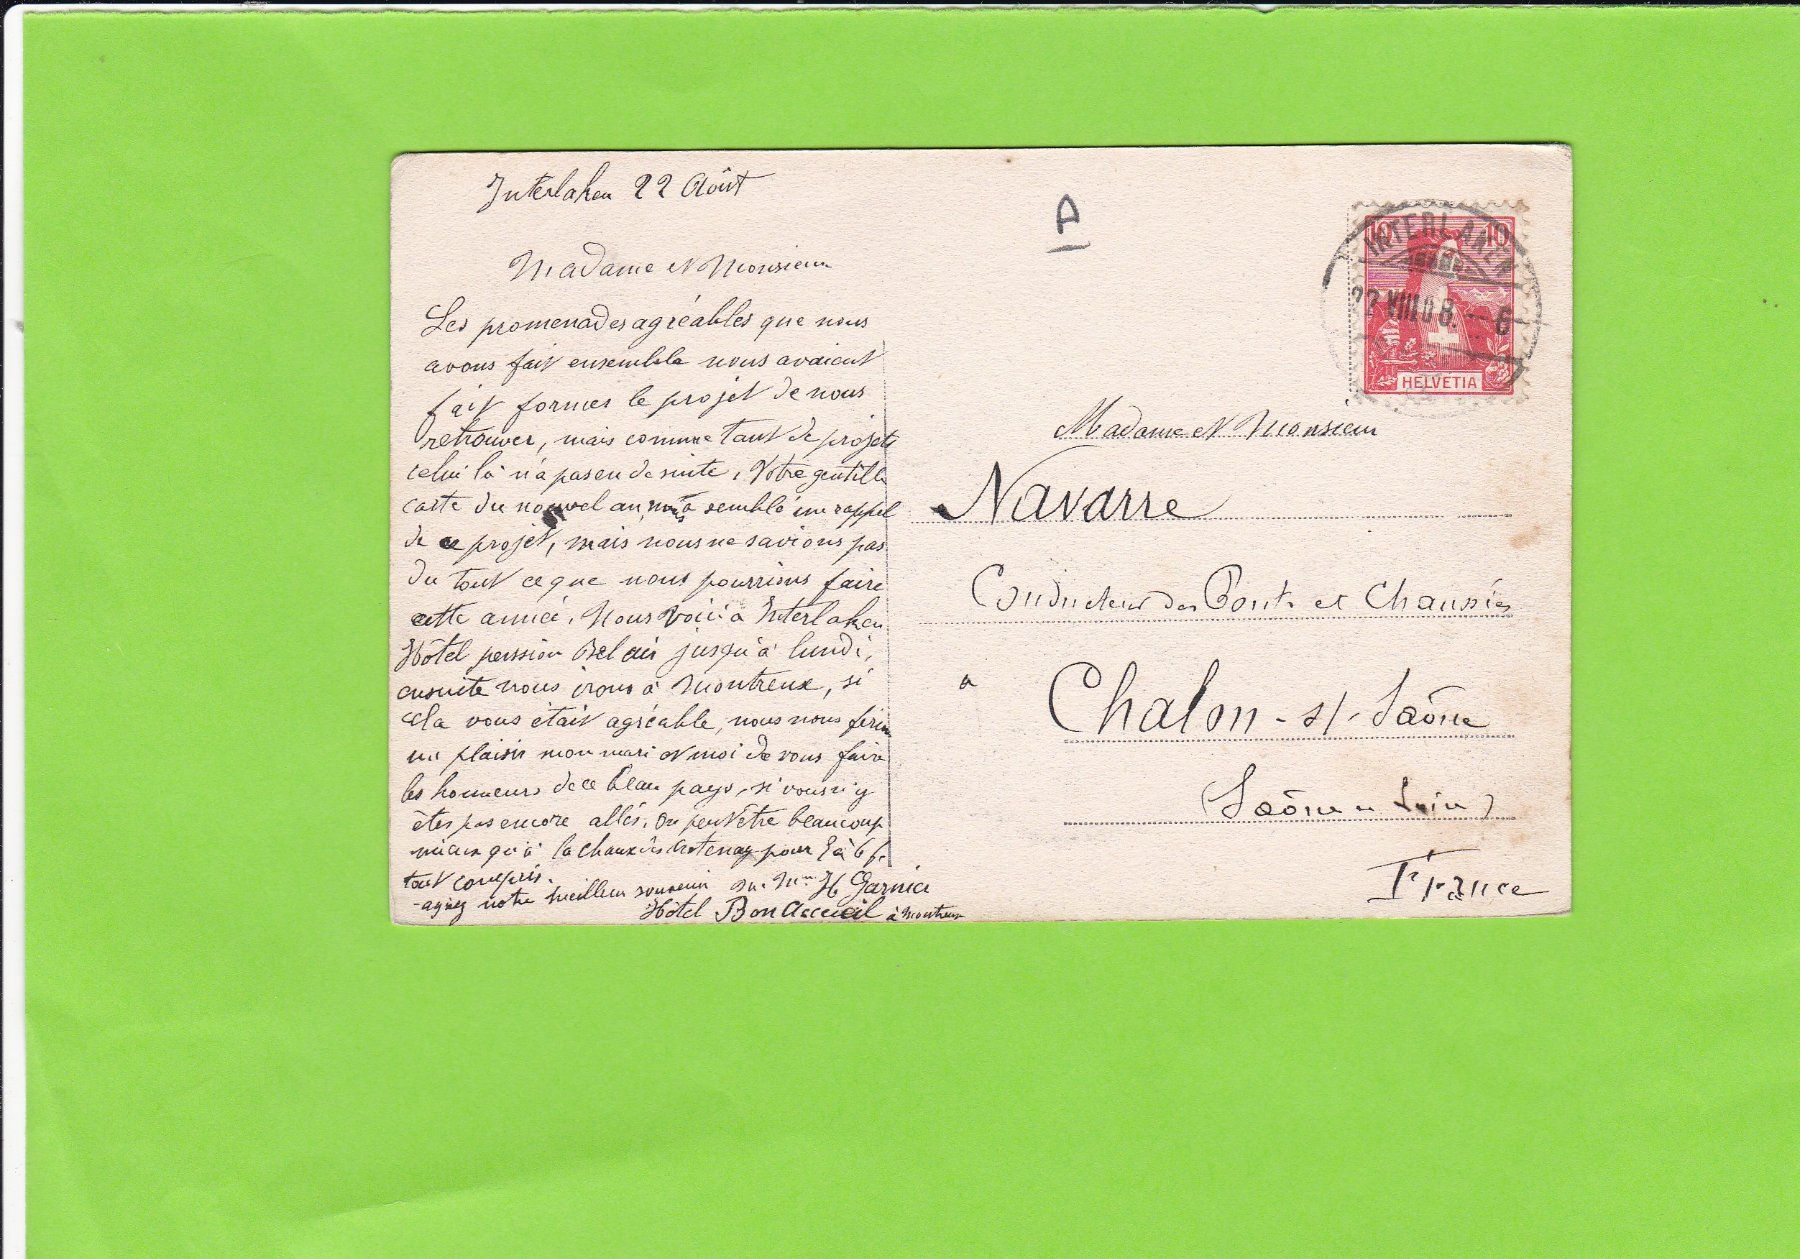 Interlaken 22 Août
Madame et Monsieur
Les promenades agréables que nous
avons fait ensemble nous avaient
fait former le projet de nous
retrouver, mais comme tant de projets
celui là n'a pas eu de suite. Votre gentille
carte du nouvel an, m'a semblé un rappel
de ce projet, mais nous ne savions pas
du tout ce que nous pourrions faire
cette année. Nous voici à Interlaken
Hôtel pension Bel air jusqu'à lundi,
ensuite nous irons à Montreux, si
cela vous était agréable, nous nous ferions
un plaisir mon mari et moi de vous faire
les honneurs de ce beau pays, si vous n'y
êtes pas encore allés. On peut être beaucoup
mieux qu'à la chaux pour 5 à 6 f.
tout compris.
agréez notre meilleur souvenir H Garnier
Hôtel Bon Accueil à Montreux
D
INTERLAKEN
22 VIII 08. 6
10
HELVETIA
Madame et Monsieur
Navarre
Conducteur des Ponts et Chaussées
à
Chalon-s/-Saône
(Saône et Loire)
France